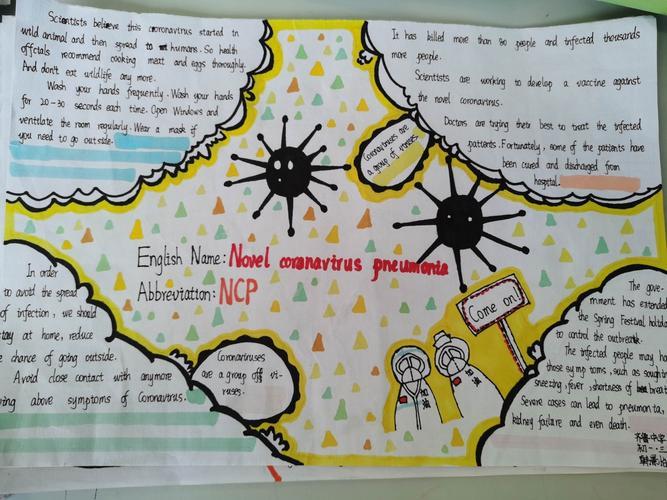 Scientists believe this coronavirus started in
wild animal and then spread to humans. So health
offcials recommend cooking meat and eggs thoroughly.
And don't eat wildlife any more.
Wash your hands frequently. Wash your hands
for 20-30 seconds each time. Open Windows and
ventilate the room regularly. Wear a mask if
you need to go outside.
It has killed more than 80 people and infected thousands
more people.
Scientists are working to develop a vaccine against
the novel coronavirus.
Doctors are trying their best to treat the infected
patients. Fortunately, some of the patients have
been cured and discharged from
hospital.
Coronaviruses are
a group of viruses.
English Name: Novel coronavirus pneumonia
Abbreviation: NCP
Come on!
加油
加油
In order
to avoid the spread
of infection, we should
stay at home, reduce
chance of going outside.
Avoid close contact with anymore
above symptoms of Coronavirus.
Coronaviruses
are a group off vi-
ruses.
The gove-
rnment has extended
the Spring Festival
to control the outbreak.
The infected people may
those symptoms, such as
sneezing, fever, shortness of breath
Severe cases can lead to pneumonia,
kidney failure and even death.